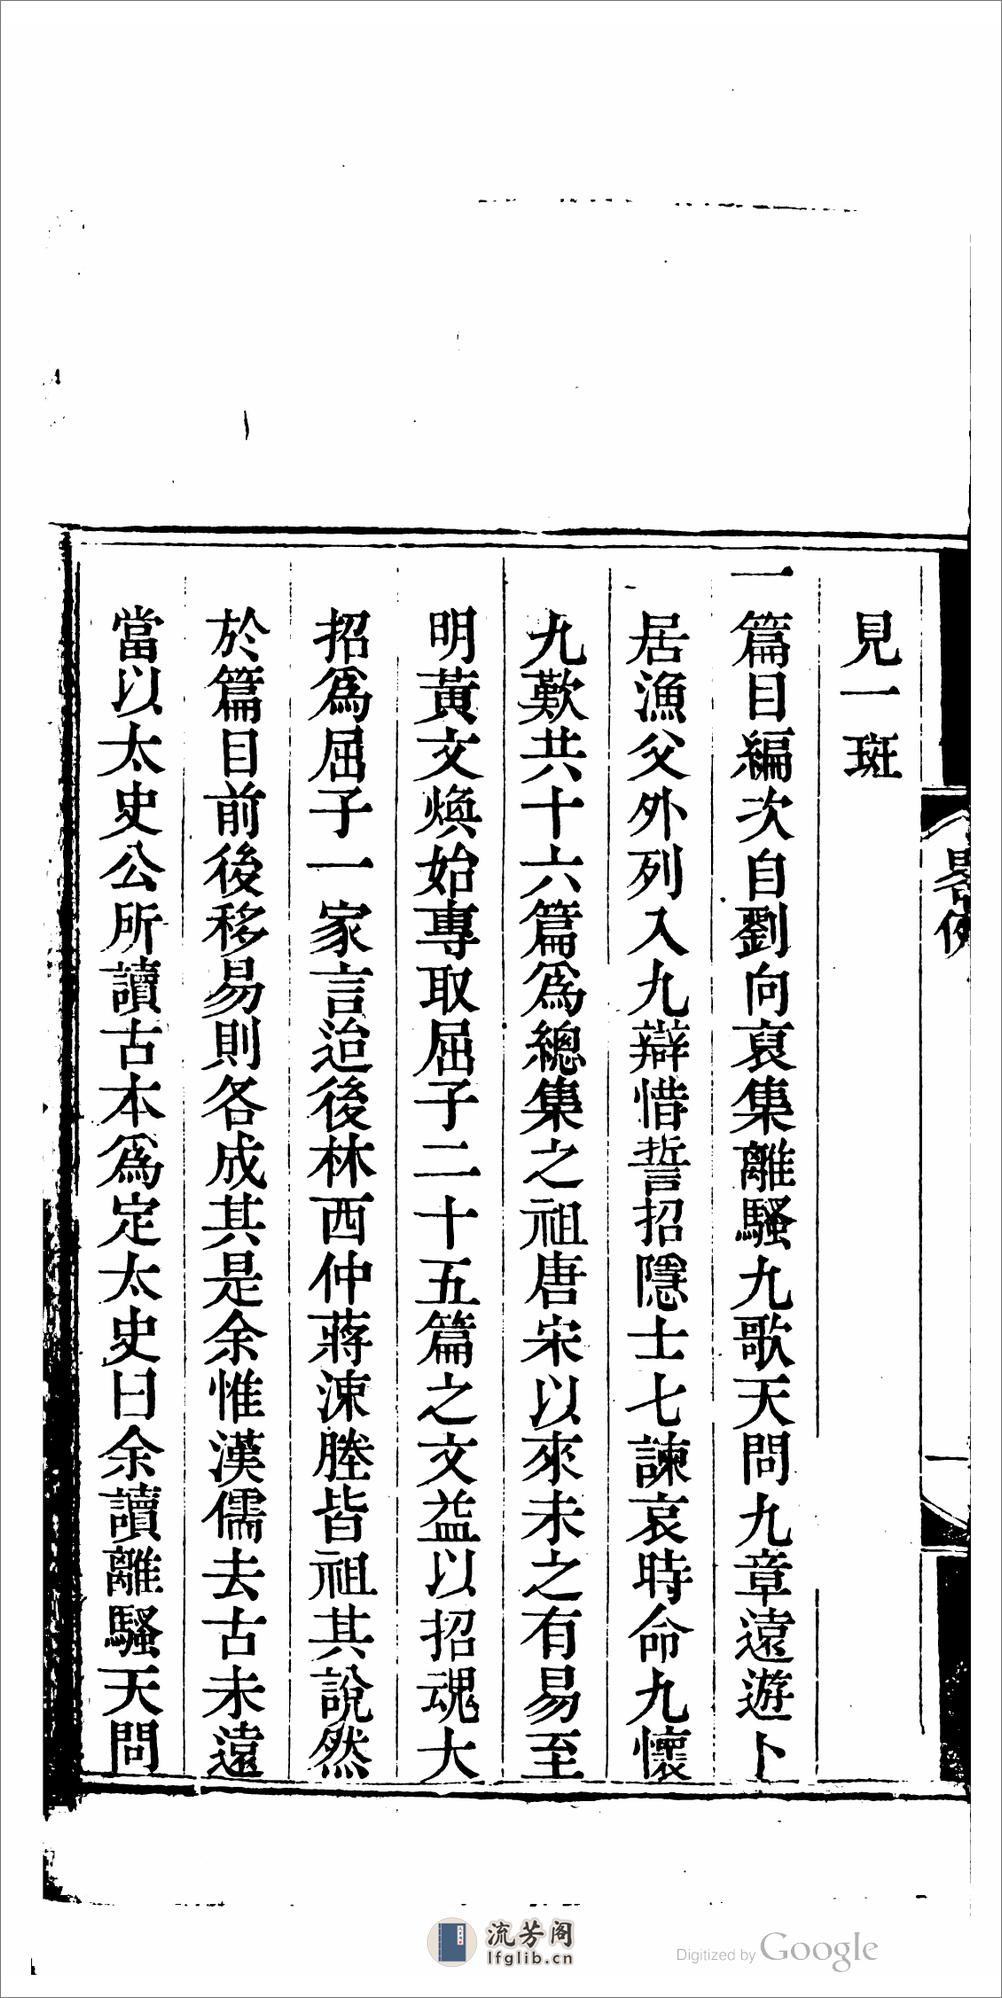 見一斑
一篇目編次自劉向裒集離騷九歌天問九章遠遊卜
居漁父外列入九辯惜誓招隱士七諫哀時命九懷
九歎共十六篇爲總集之祖唐宋以來未之有易至
明黃文煥始專取屈子二十五篇之文益以招魂大
招爲屈子一家言迨後林西仲蔣涑塍皆祖其說然
於篇目前後移易則各成其是余惟漢儒去古未遠
當以太史公所讀古本爲定太史曰余讀離騷天問
畧例
一
流芳阁
lfglib.cn
Digitized by Google